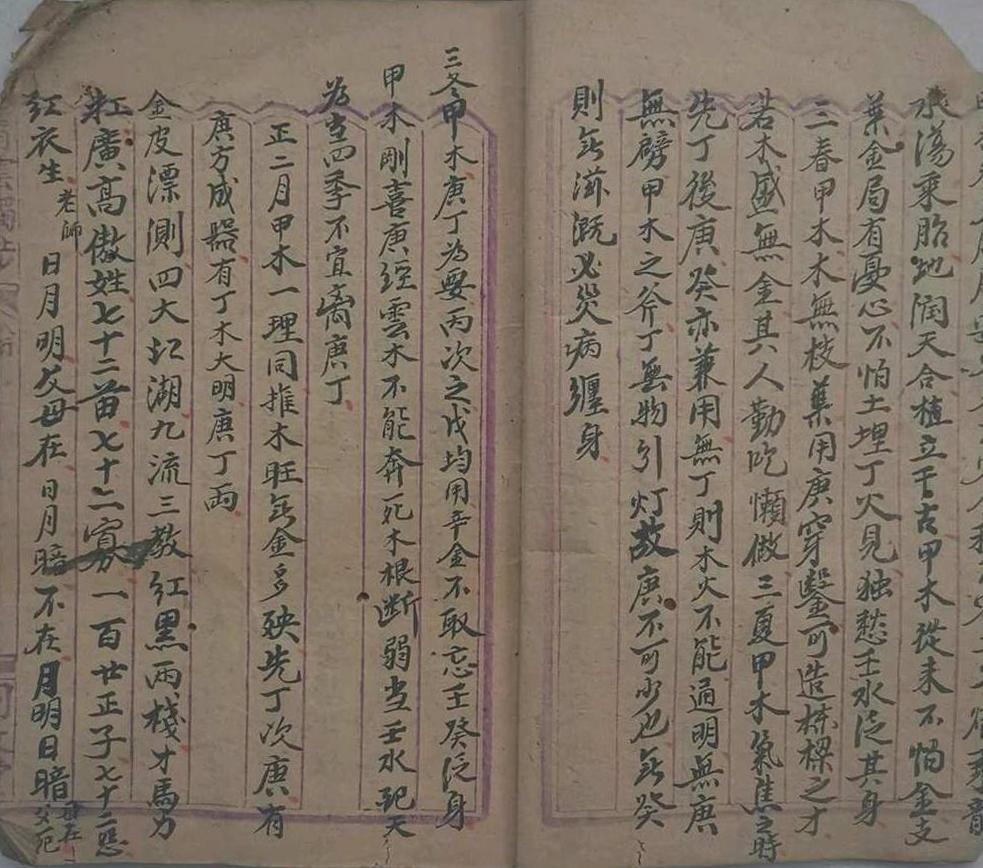 水蕩乘胎地润天合植立千古甲木從未不怕金支
葉金局有憂心不怕土埋丁火見独愁壬水泛其身
三春甲木木無枝葉用庚穿鑿可造棟樑之才
若木盛無金其人勤吃懶做三夏甲木氣焦之時
先丁後庚癸亦兼用無丁則木火不能通明無庚
無劈甲木之斧丁無物引灯故庚不可少也無癸
則無滋溉必災病纏身
三冬甲木庚丁為要丙次之戊均用辛金不取忘壬癸泛身
甲木剛喜庚 雲木不能奔死木根断弱当壬水 天
为当四季不宜离庚丁
正二月甲木一理同推木旺無金多殃先丁次庚有
庚方成器有丁木大明庚丁两
金皮漂測四大江湖九流三教紅黑两棧才馬力
紅廣高傲姓七十二苗七十二寡一百廿正子七十二
紅衣生老師 日月明父母在 日月暗不在月明日暗母在父死